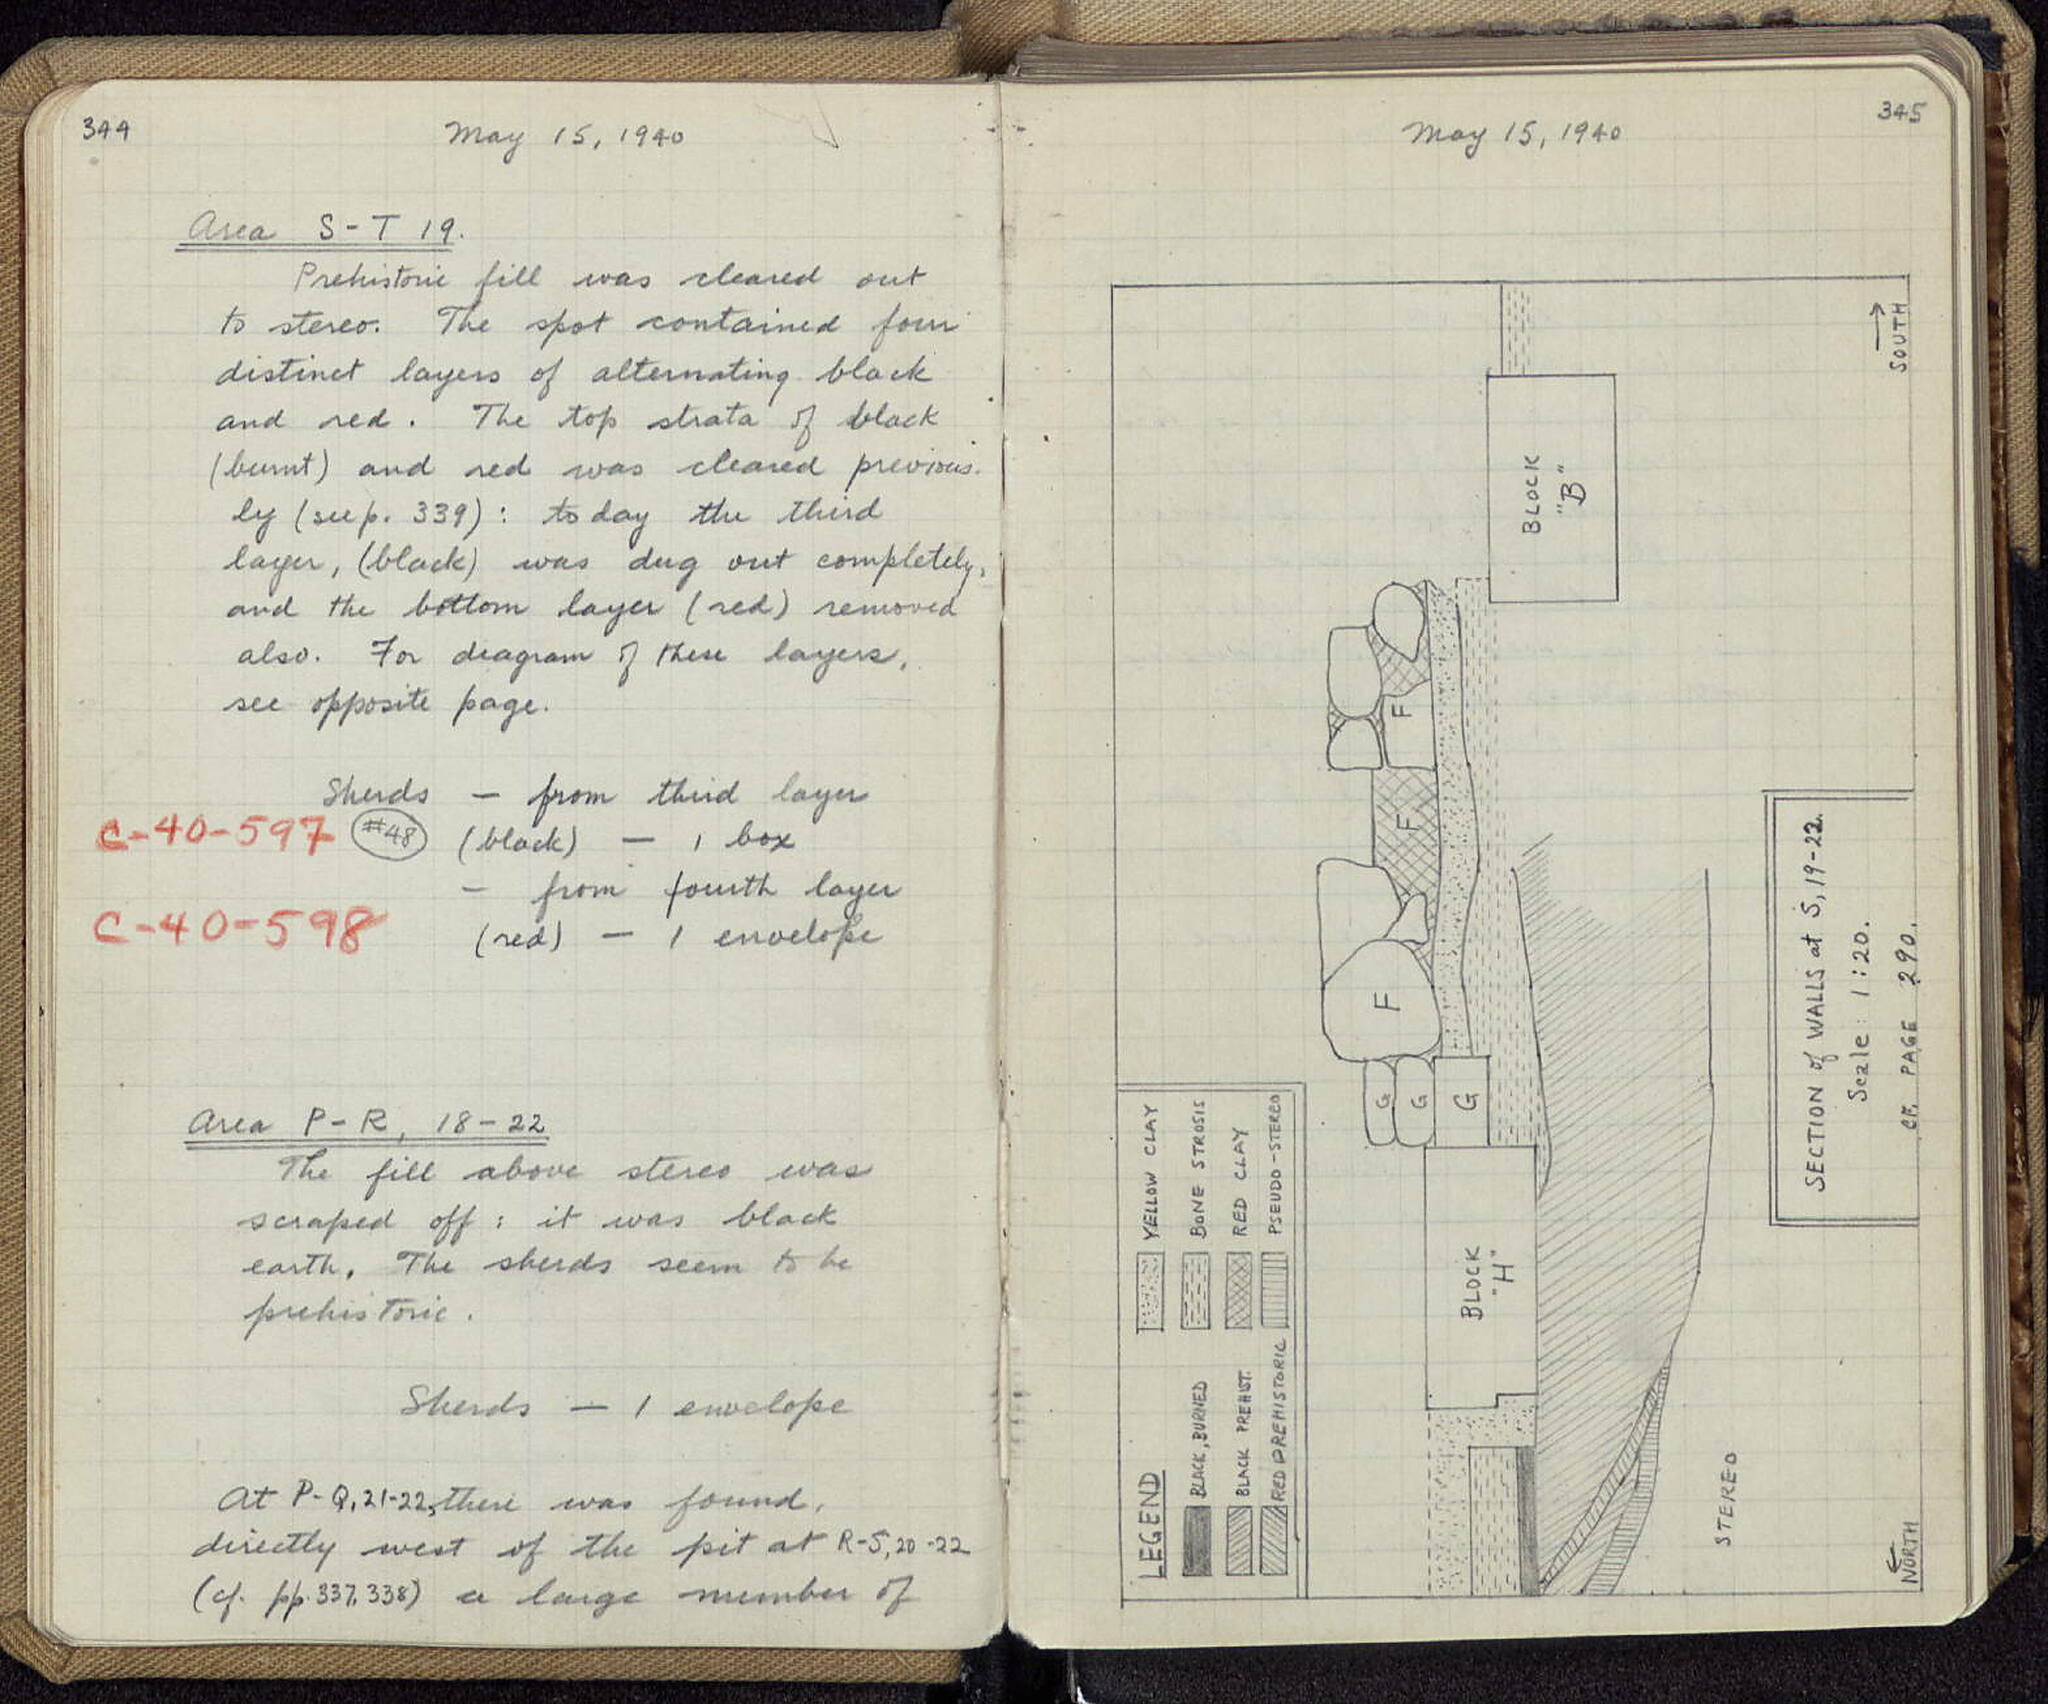 344
May 15, 1940
Area S-T 19.
Prehistoric fill was cleared out
to stereo. The spot contained four
distinct layers of alternating black
and red. The top strata of black
(burnt) and red was cleared previous-
ly (see p. 339): today the third
layer, (black) was dug out completely,
and the bottom layer (red) removed
also. For diagram of these layers,
see opposite page.
Sherds — from third layer
C-40-597 #48 (black) — 1 box
— from fourth layer
C-40-598 (red) — 1 envelope
Area P-R, 18-22
The fill above stereo was
scraped off: it was black
earth. The sherds seem to be
prehistoric.
Sherds — 1 envelope
At P-Q, 21-22, there was found,
directly west of the pit at R-S, 20-22
(cf. pp. 337, 338) a large number of
345
May 15, 1940
LEGEND
BLACK, BURNED
BLACK PREHIST.
RED PREHISTORIC
YELLOW CLAY
BONE STROSIS
RED CLAY
PSEUDO-STEREO
F
F
F
G
G
G
BLOCK
"H"
BLOCK
"B"
STEREO
NORTH
SOUTH
SECTION of WALLS at S, 19-22.
Scale: 1:20.
CF. PAGE 290.